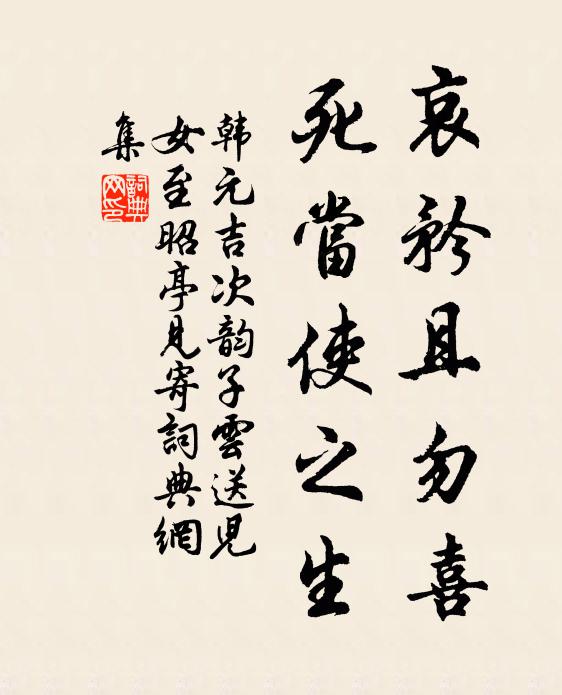 哀矜且勿喜
死當使之生
韩元吉次韵子雲送児
女至昭亭見寄詞典網
集
詞典網印